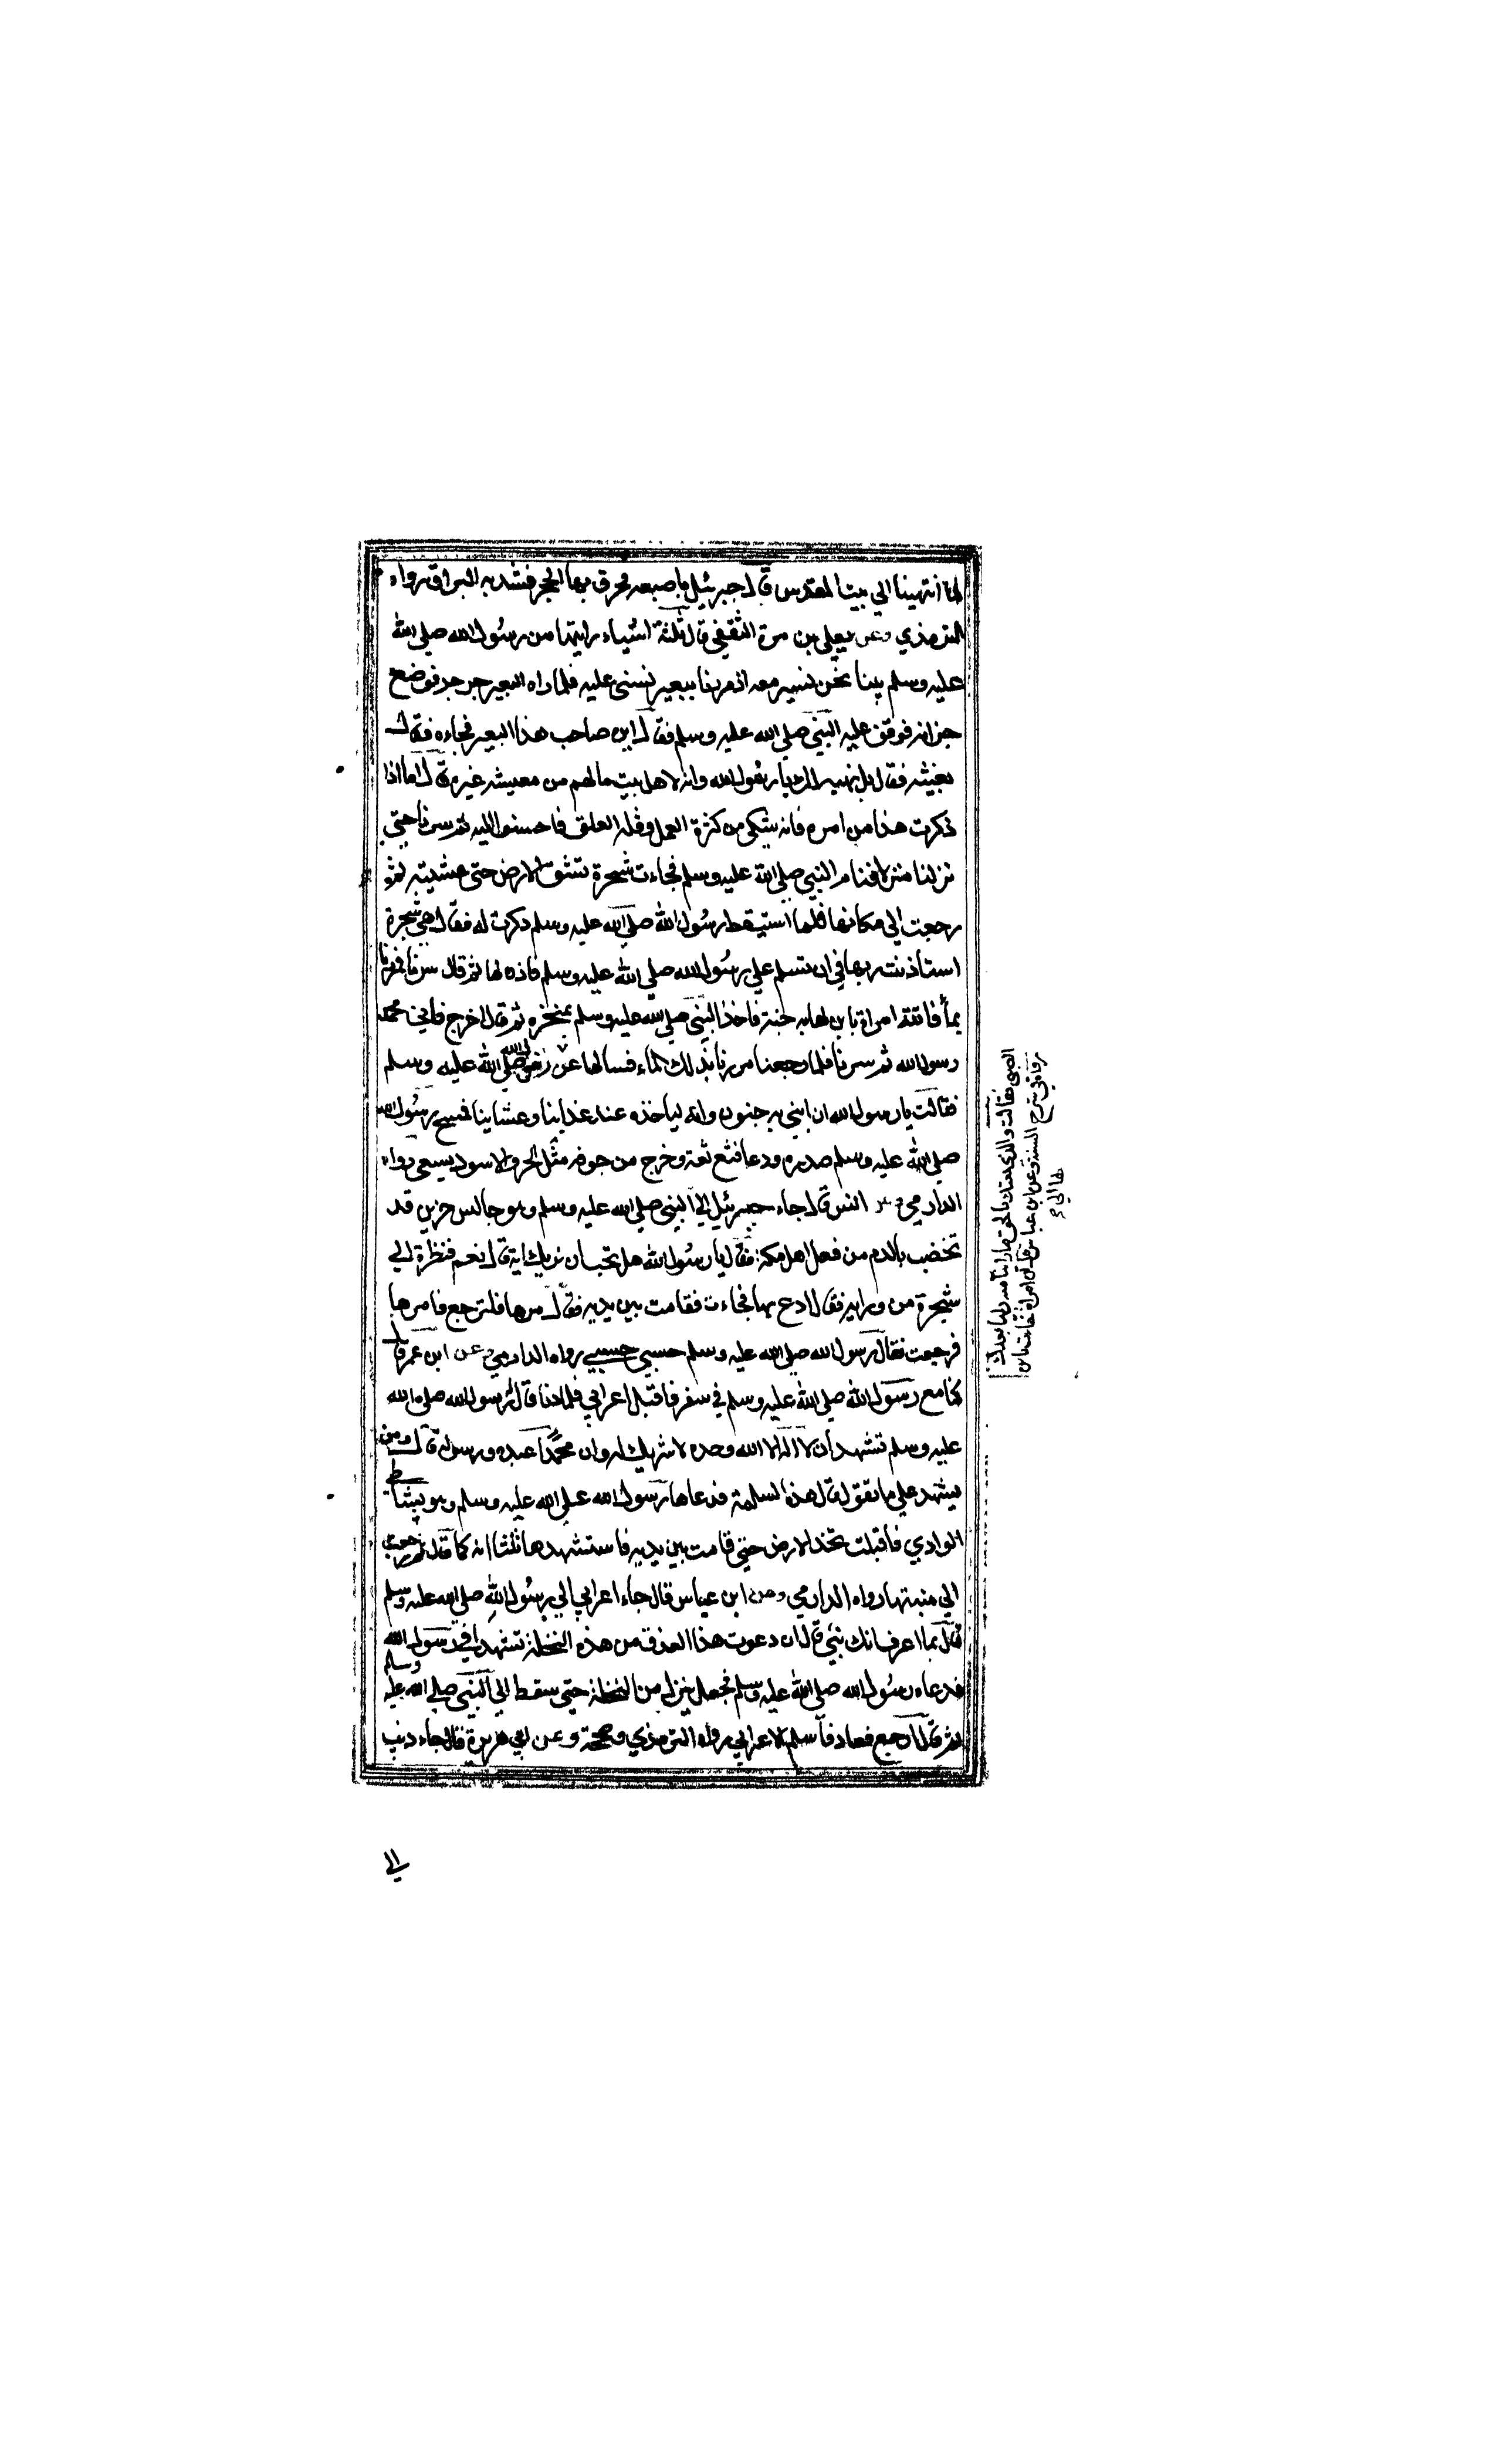 لما انتهينا الي بيت المقدس قال جبرئيل باصبعه فخرق بها الحجر فشد به البراق رواه
الترمذي وعن يعلي بن مرة الثقفي قال ثلثة اشياء رايتها من رسول الله صلي الله
عليه وسلم بينا نحن نسير معه اذ مررنا ببعير يسني عليه فلما راه البعير جرجر فوضع
جرانه فوقف عليه النبي صلي الله عليه وسلم فقال اين صاحب هذا البعير فجاءه فقال
بعنيه فقال بل نهبه لك يا رسول الله وانه لاهل بيت مالهم من معيشه غيره قال اما اذا
ذكرت هذا من امره فانه شكي من كثرة العمل وقلة العلق فاحسنوا اليه ثم سرنا حتي
نزلنا منزلا فنام النبي صلي الله عليه وسلم فجاءت شجرة تشق الارض حتى غشيته ثم
رجعت الي مكانها فلما استيقظ رسول الله صلي الله عليه وسلم ذكرت له فقال هي شجرة
استاذنت ربها في ان تسلم علي رسول الله صلي الله عليه وسلم فاذن لها ثم قال سرنا فمررنا
بماء فاتته امراة بابن لها به جنة فاخذ النبي صلي الله عليه وسلم بمنخره ثم قال اخرج فاني محمد
رسول الله ثم سرنا فلما رجعنا مررنا بذلك الماء فسالها عن صلي الله عليه وسلم
فقالت يا رسول الله ان ابني به جنون وانه لياخذه عند غداينا وعشاينا فمسح رسول الله
صلي الله عليه وسلم صدره ودعا فثع ثعة وخرج من جوفه مثل الجرو الاسود يسعي رواه
الدارمي وعن انس قال جاء جبرئيل الي النبي صلي الله عليه وسلم وهو جالس حزين قد
تخضب بالدم من فعل اهل مكة فقال يا رسول الله هل تحب ان نريك اية قال نعم فنظرة الي
شجرة من ورايه فقال ادع بها فجاءت فقامت بين يديه فقال مرها فلترجع فامرها
فرجعت فقال رسول الله صلي الله عليه وسلم حسبي حسبي رواه الدارمي وعن ابن عمر قال
كنا مع رسول الله صلي الله عليه وسلم في سفر فاقبل اعرابي فلما دنا قال له رسول الله صلي الله
عليه وسلم تشهد ان لا اله الا الله وحده لا شريك له وان محمدا عبده ورسوله قال ومن
يشهد علي ما تقول قال هذه السلمة فدعاها رسول الله صلي الله عليه وسلم وهو بشاطي
الوادي فاقبلت تخد الارض حتي قامت بين يديه فاستشهدها ثلثا انه كما قال ثم رجعت
الي منبتها رواه الدارمي وعن ابن عباس قال جاء اعرابي الي رسول الله صلي الله عليه وسلم
قال بما اعرف انك نبي قال ان دعوت هذا العذق من هذه النخلة تشهد اني رسول الله
فدعاه رسول الله صلي الله عليه وسلم فجعل ينزل من النخلة حتي سقط الي النبي صلي الله عليه وسلم
ثم قال ارجع فعاد فاسلم الاعرابي رواه الترمذي وصححه وعن ابي هريرة قال جاء ذئب
الصبي فقالت والذي بعثك بالحق ما راينا منه ريبا بعدك
رواه في شرح السنة وعن ابن عباس قال ان امراة جاءت بابن
لها الي
الي